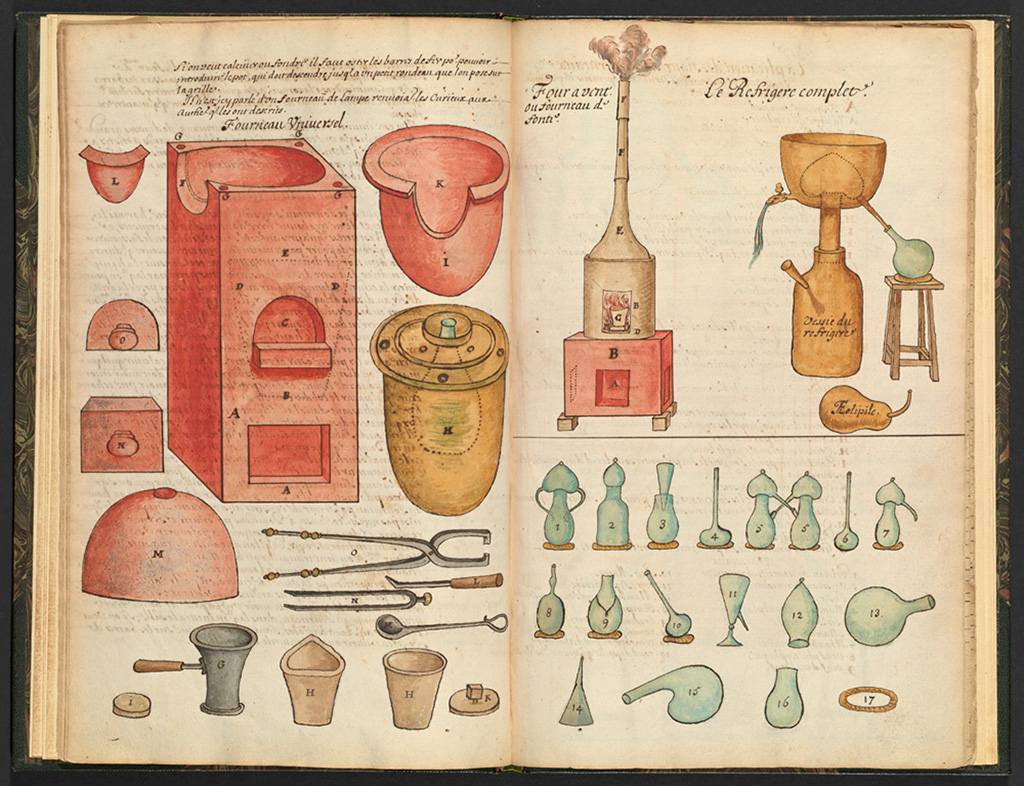 Si on veut calciner ou fondre il faut oster les barres de fer po.r pouvoir
introduire le pot, qui doit descendre jusq'a un petit rondeau que l'on pose sur
la grille.
Fourneau de Lampe renvoia.t les Curieux aux
Auth.rs q.i les ont descrits.
Fourneau Universel.
G
G
F
G
G
L
K
I
E
D
D
C
B
A
A
O
N
H
M
O
L
N
M
G
H
H
I
K
Four a vent.
ou fourneau de
fonte
F
F
E
B
C
D
B
A
Le Refrigere complet.
Vessie du
refrigere
Æolipile.
1
2
3
4
5
5
6
7
8
9
10
11
12
13
14
15
16
17